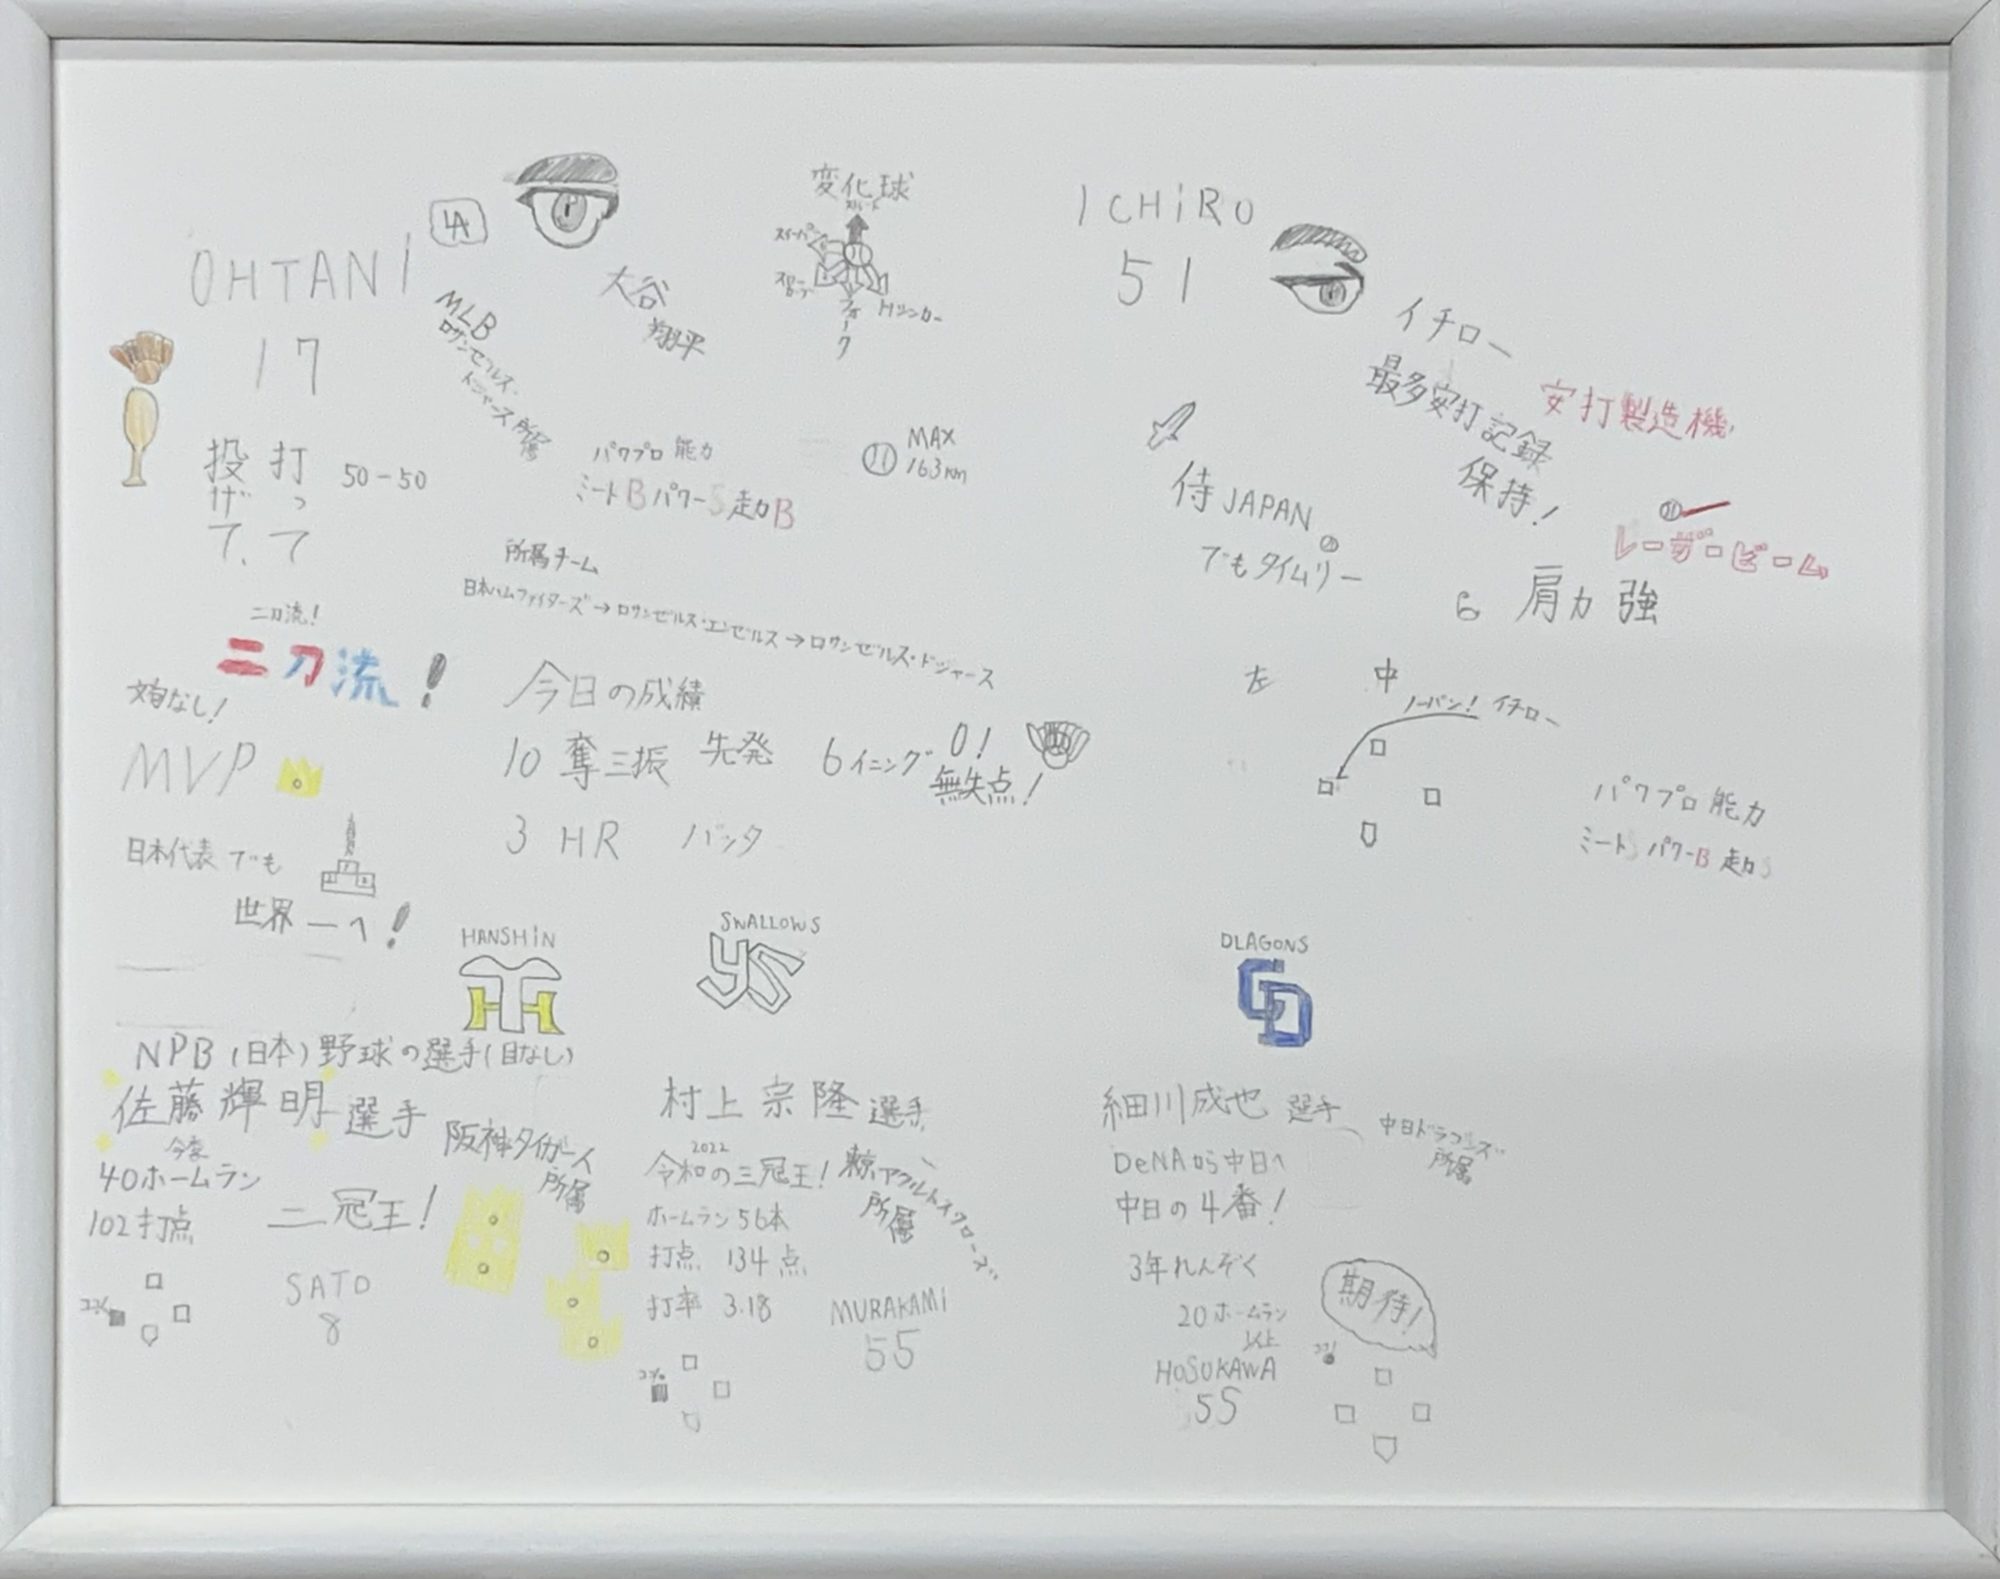 OHTANI
17
LA
MLB
ロサンゼルス・
ドジャース所属
大谷
翔平
変化球
ストレート
スイーパー
スローカーブ
フォーク
Hシンカー
投げて、
打って
50-50
パワプロ能力
ミートB パワーS 走力B
MAX
163km
所属チーム
日本ハムファイターズ→ロサンゼルス・エンゼルス→ロサンゼルス・ドジャース
二刀流!
二刀流!
文句なし!
MVP
日本代表でも
世界一へ!
今日の成績
10 奪三振 先発 6イニング 0!
無失点!
3 HR バッタ
ICHiRO
51
イチロー
最多安打記録
保持!
安打製造機
侍JAPAN
でもタイムリー
レーザービーム
6 肩力 強
左 中
ノーバン! イチロー
パワプロ能力
ミートS パワーB 走力S
HANSHiN
HT
SWALLOWS
YS
DLAGONS
CD
NPB(日本)野球の選手(目なし)
佐藤輝明選手
阪神タイガース
所属
今季
40ホームラン
102打点
二冠王!
SATO
8
村上宗隆選手
2022
令和の三冠王!
東京ヤクルトスワローズ
所属
ホームラン56本
打点 134点
打率 3.18
MURAKAMi
55
ココ
細川成也 選手
中日ドラゴンズ
所属
DeNAから中日へ
中日の4番!
3年れんぞく
20ホームラン
以上
期待!
HOSUKAWA
55
ココ